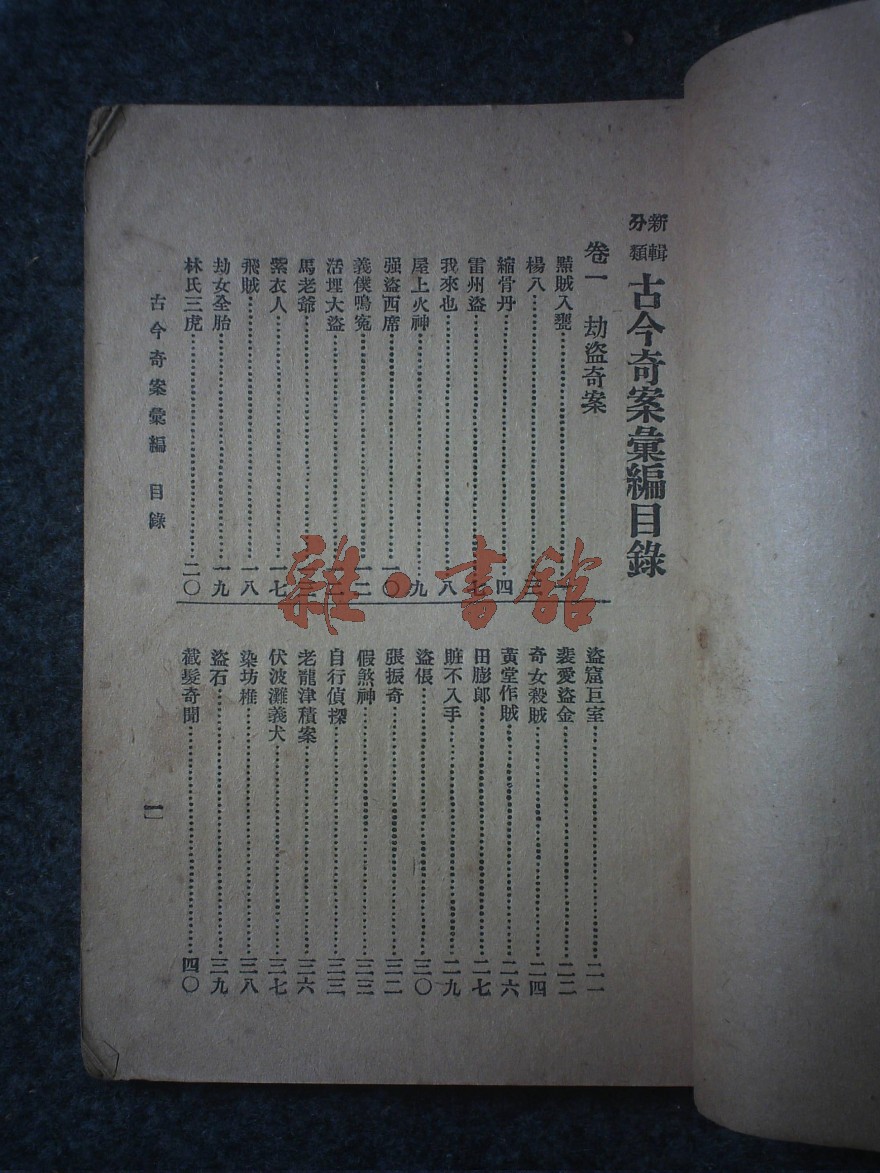 新輯
分類
古今奇案彙編目錄
卷一 劫盜奇案
黠賊入甕
楊八
縮骨丹 四
雷州盜 七
我來也 八
屋上火神 九
强盜西席 一〇
義僕鳴寃 一二
活埋大盜
馬老爺
紫衣人 一七
飛賊 一八
劫女全胎 一九
林氏三虎 二〇
盜窟巨室 二一
裴愛盜金 二二
奇女殺賊 二四
黃堂作賊 二六
田膨郎 二七
贓不入手 二九
盜倀 三〇
張振奇 三二
假煞神 三三
自行偵探 三三
老龍津積案 三六
伏波灘義犬 三七
染坊椎 三八
盜石 三九
截髮奇聞 四〇
古今奇案彙編 目錄
一
雜·書館